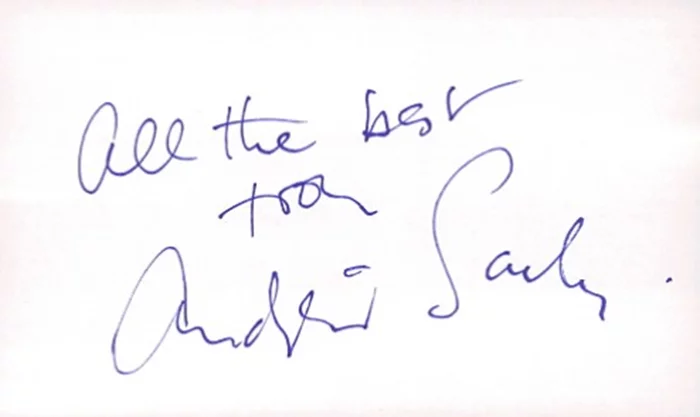 All the best
from
Andrew Sachs.